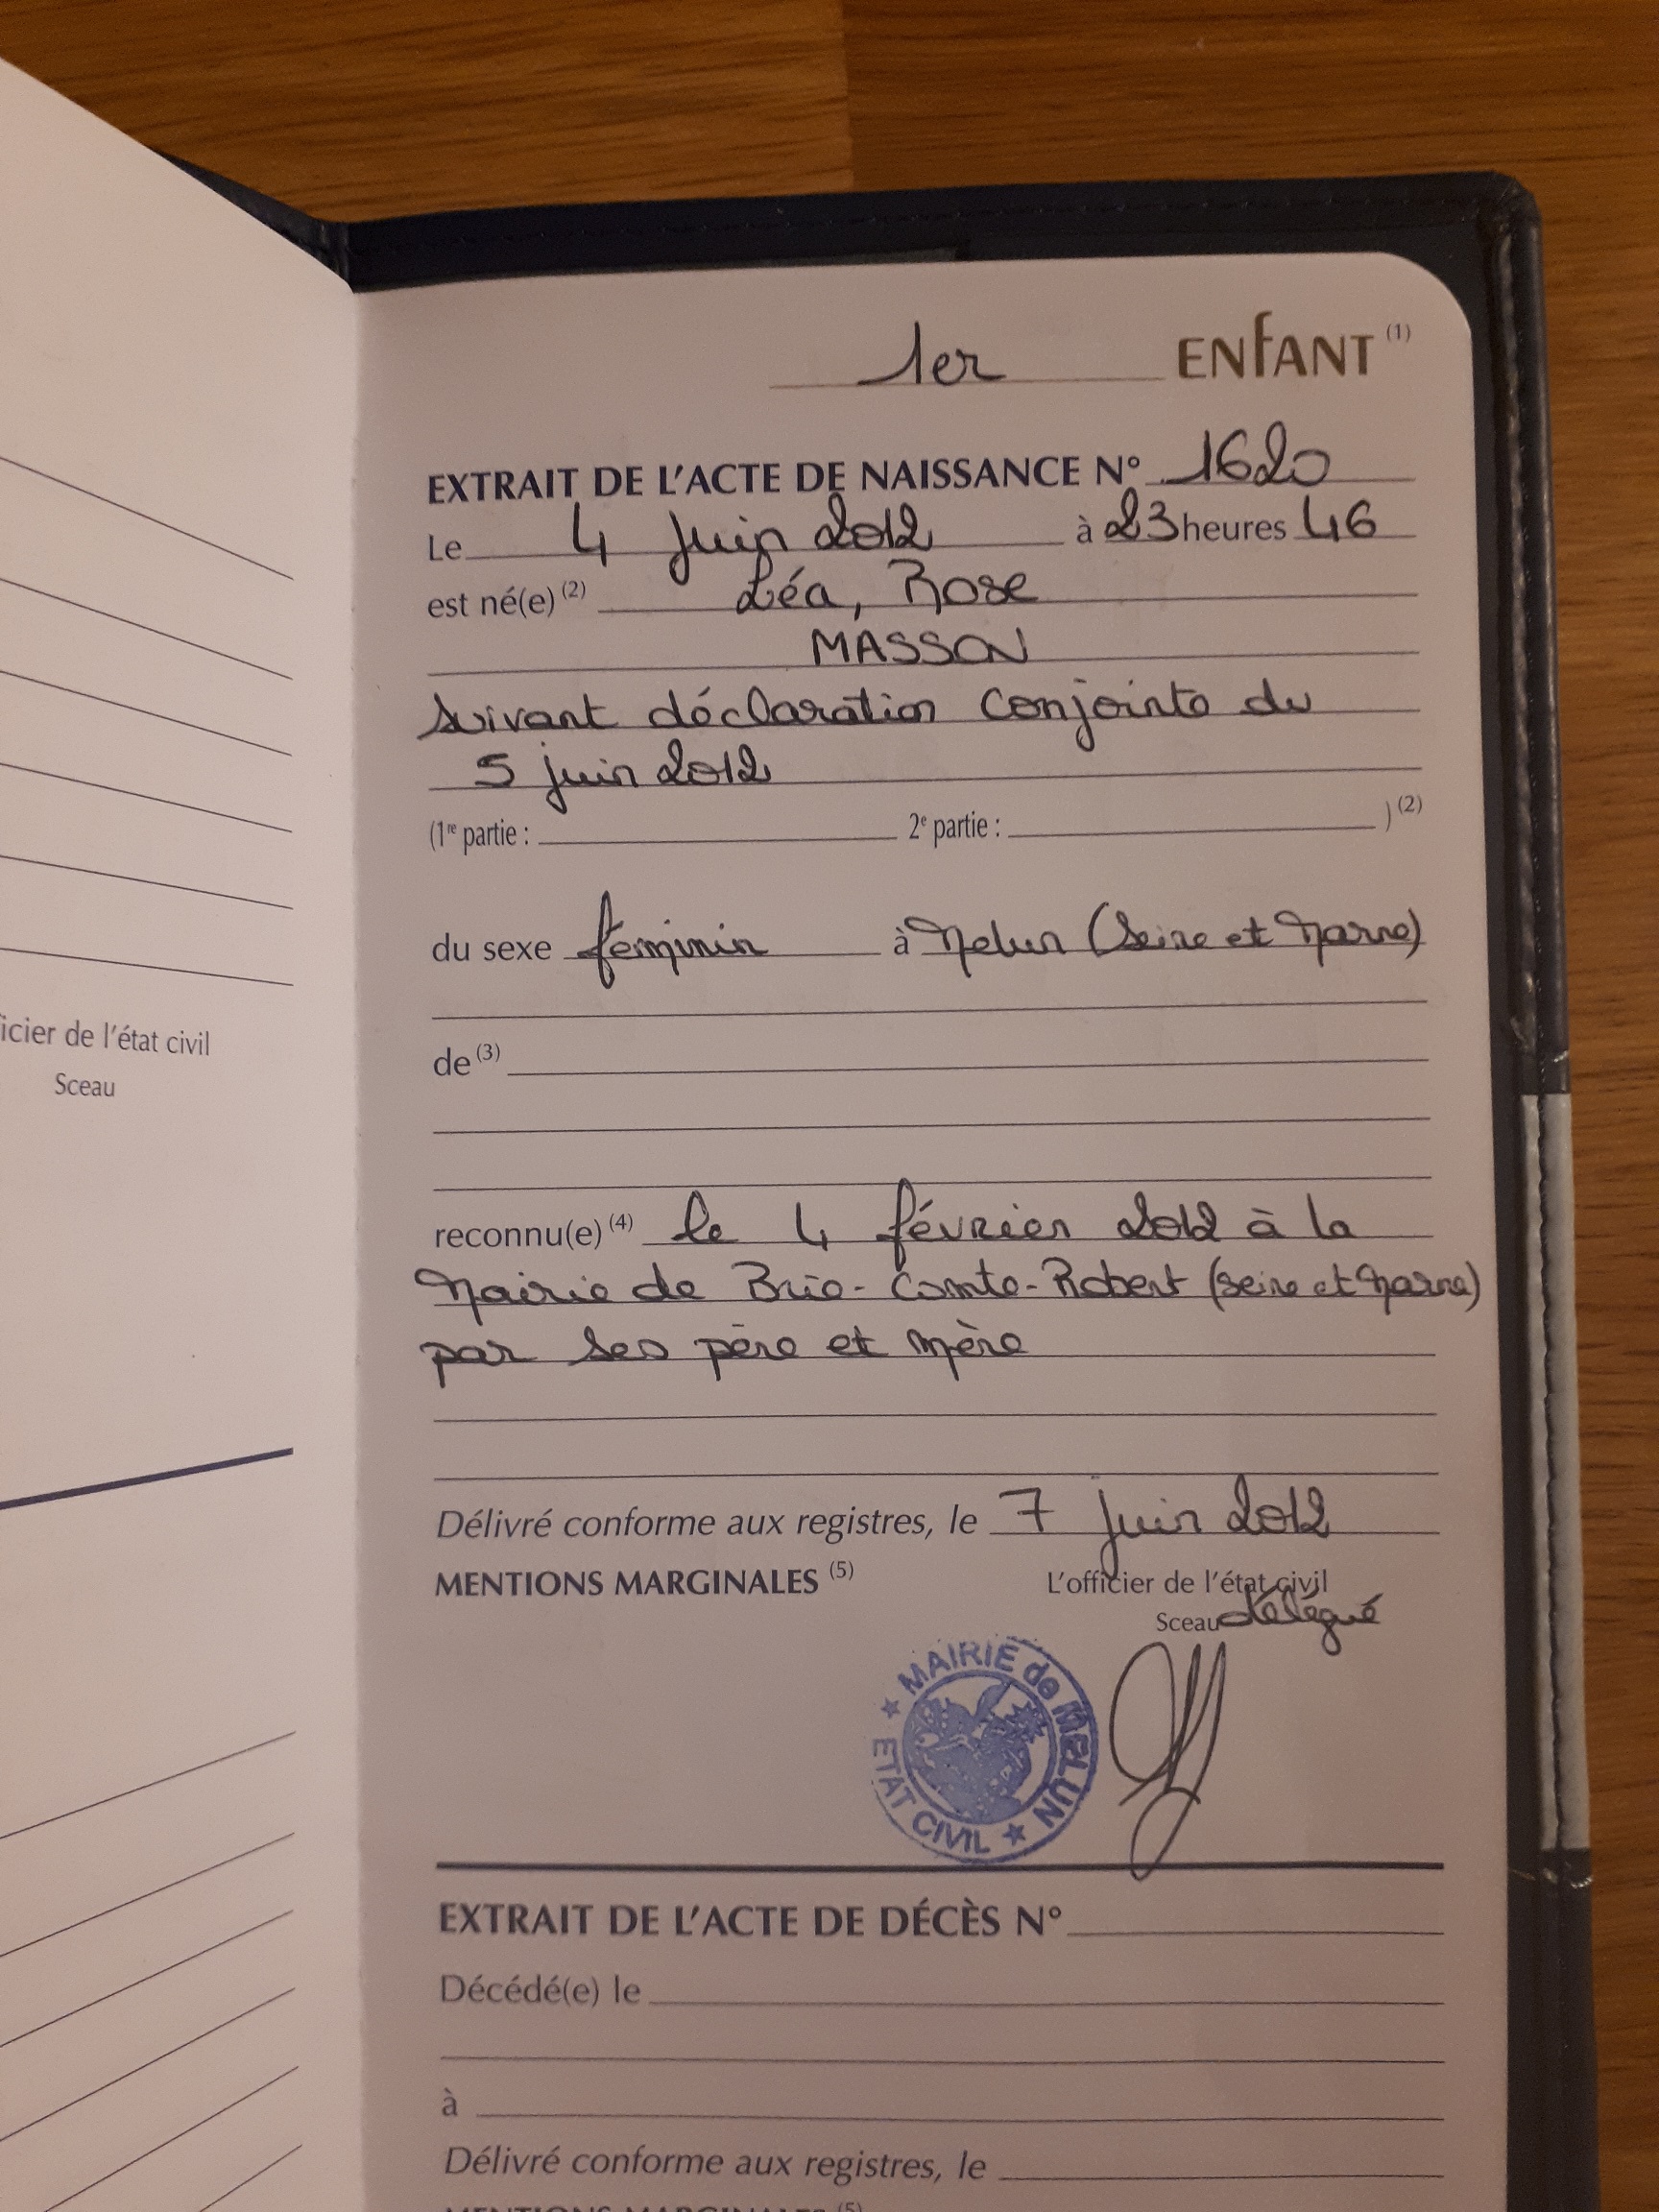 icier de l'état civil
Sceau
1er ENFANT (1)
EXTRAIT DE L'ACTE DE NAISSANCE N° 1620
Le 4 Juin 2012 à 23 heures 46
est né(e) (2) Léa, Rose
MASSON
suivant déclaration conjointe du
5 juin 2012
(1re partie : 2e partie : ) (2)
du sexe féminin à Melun (Seine et Marne)
de (3)
reconnu(e) (4) le 4 février 2012 à la
Mairie de Brie-Comte-Robert (Seine et Marne)
par ses père et mère
Délivré conforme aux registres, le 7 Juin 2012
MENTIONS MARGINALES (5) L'officier de l'état civil
Sceau délégué
MAIRIE de MELUN
ETAT CIVIL
EXTRAIT DE L'ACTE DE DÉCÈS N°
Décédé(e) le
à
Délivré conforme aux registres, le
MENTIONS MARGINALES (5)